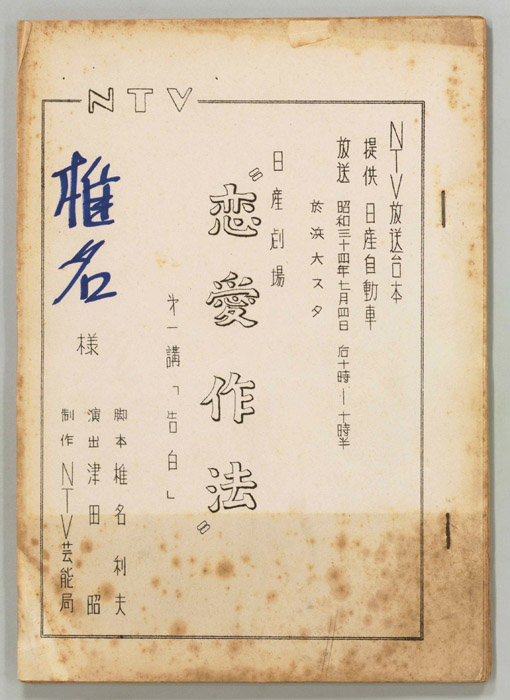 NTV
NTV放送台本
提供 日産自動車
放送 昭和三十四年七月四日 后十時―十時半
於浜大スタ
日産劇場
"恋愛作法"
才一講「告白」
椎名
様
脚本 椎名利夫
演出 津田昭
制作 NTV芸能局